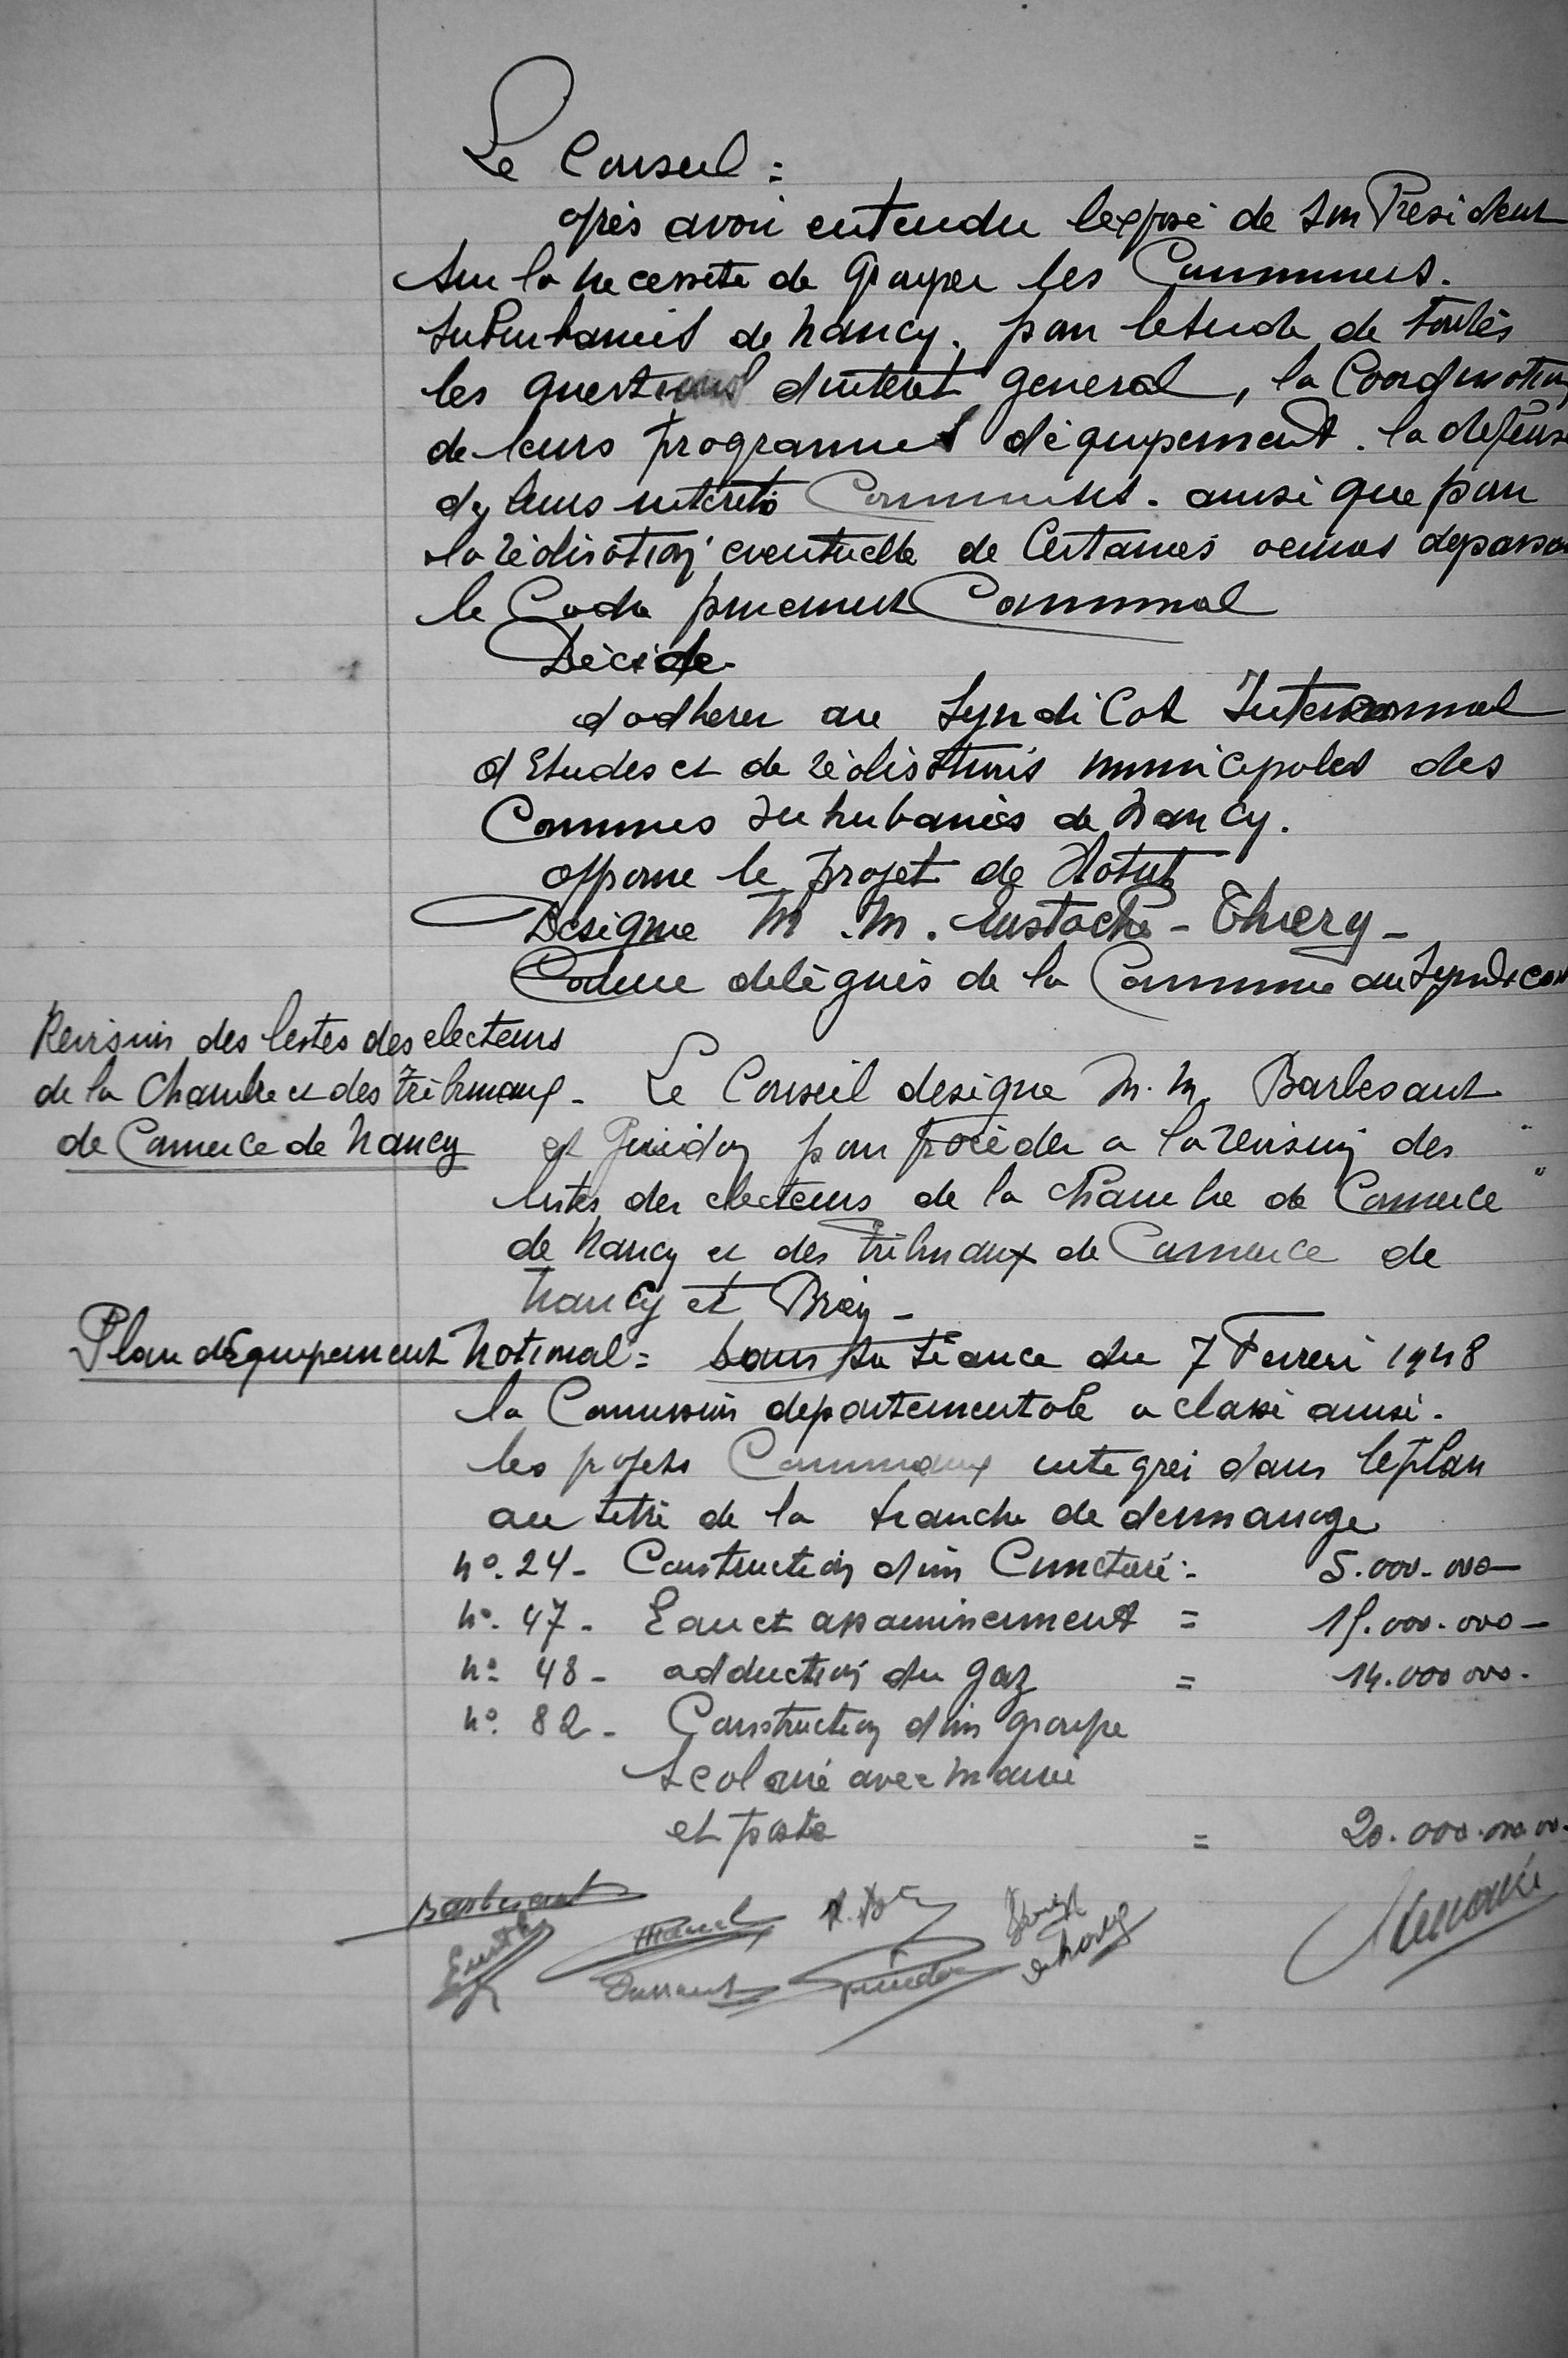 Le Conseil =
après avoir entendu l'exposé de son Président
sur la necessité de Grouper les Communes.
suburbaines de Nancy. pour l'etude de toutes
les questions d'interet general, la Coordination
de leurs programmes d'équipement. la defense
de leurs interets Communs. ainsi que pour
la réalisation eventuelle de Certaines depassant
le Cadre purement Communal
Décide
d'adherer au Syndicat Intercommunal
d'Etudes et de réalisations municipales des
Communes suburbaines de Nancy.
approuve le projet de Statut
Designe M. M. Eustache - Thiery -
Comme delégués de la Commune au Syndicat
Revision des listes des electeurs
de la Chambre et des Tribunaux -
de Commerce de Nancy
Le Conseil designe M. M. Barbesant
et Guidon pour proceder a la revision des
listes des electeurs de la Chambre de Commerce
de Nancy et des Tribunaux de Commerce de
Nancy et Briey -
Plan d'Equipement National = Dans sa séance du 7 Fevrier 1948
la Commission departementale a classé ainsi.
les projets Communaux integré dans le plan
au titre de la tranche de demarrage
n° 24 - Construction d'un Cimetière - 5.000.000 -
n° 47 - Eau et assainissement = 15.000.000 -
n° 48 - adduction du gaz = 14.000 000 -
n° 82 - Construction d'un groupe
scolaire avec mairie
et poste = 20.000.000 00 -
Barbesant
Guidon